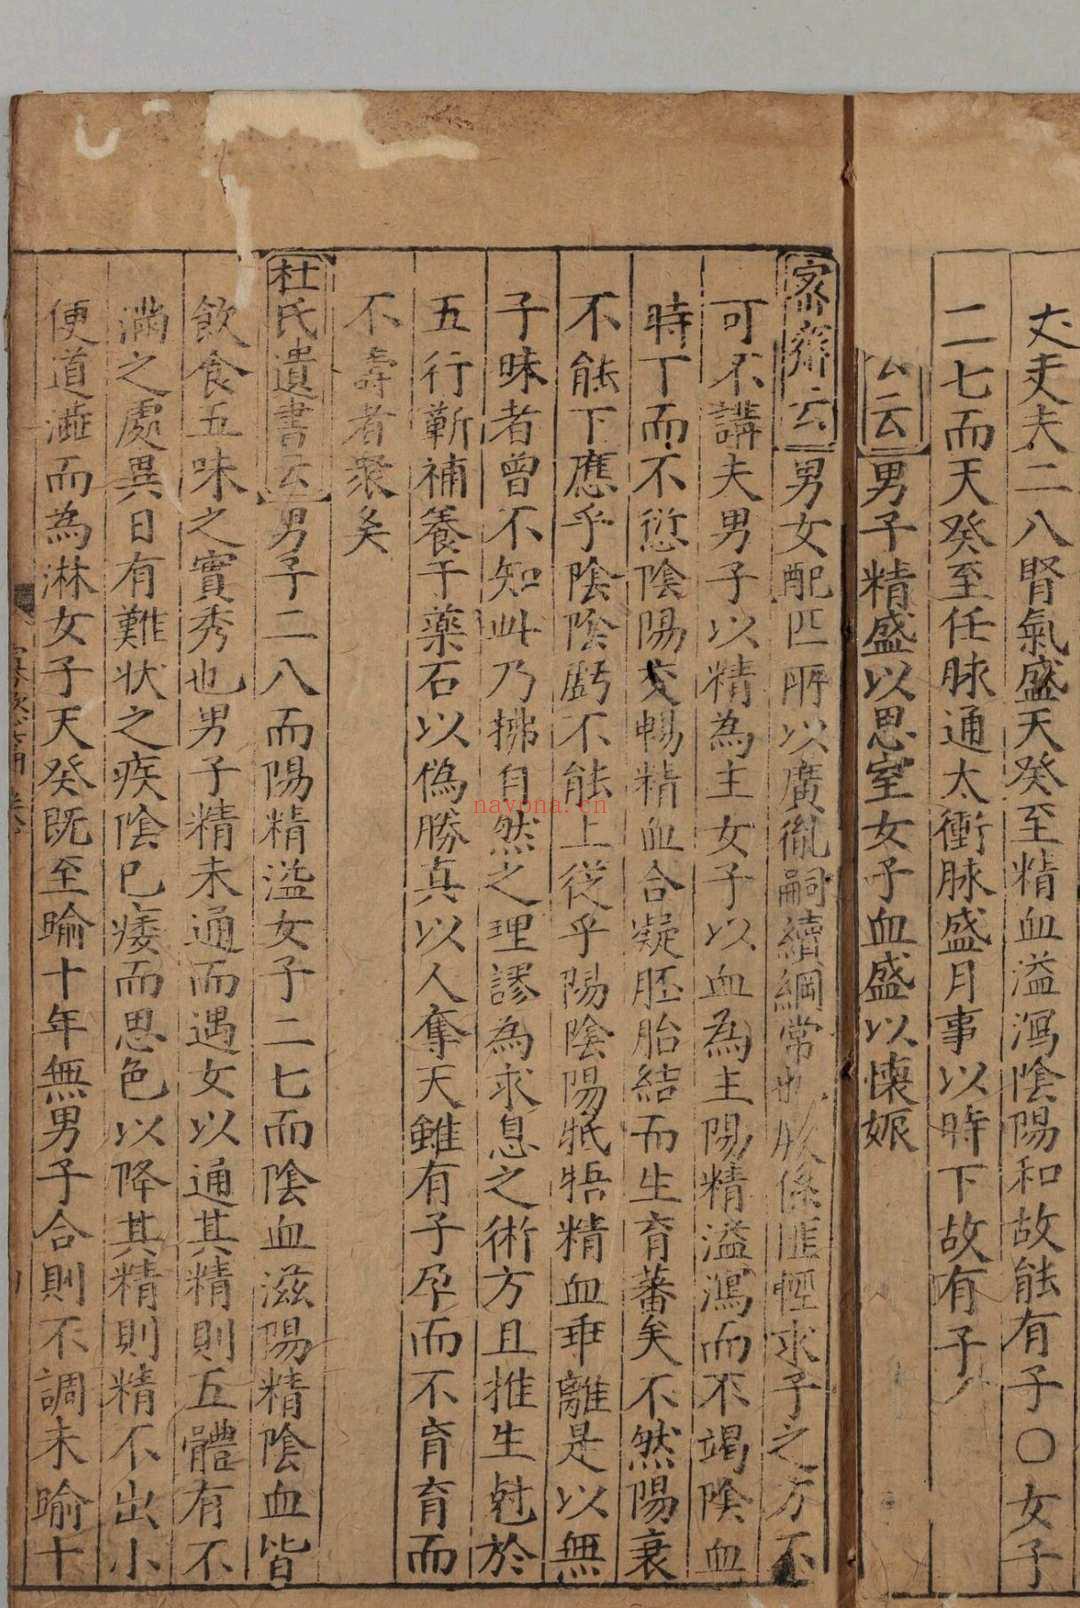 丈夫二八腎氣盛天癸至精血溢瀉陰陽和故能有子〇女子
二七而天癸至任脉通太衝脉盛月事以時下故有子
云男子精盛以思室女子血盛以懐娠
宻齋云男女配匹所以廣胤嗣續綱常也厥係匪輕求子之方不
可不講夫男子以精為主女子以血為主陽精溢瀉而不竭陰血
時下而不愆陰陽交暢精血合凝胚胎結而生育蕃矣不然陽衰
不能下應乎陰陰虧不能上從乎陽陰陽牴牾精血乖離是以無
子昧者曾不知此乃拂自然之理謬為求息之術方且推生尅於
五行蘄補養于藥石以偽勝真以人奪天雖有子孕而不育育而
不壽者衆矣
杜氏遺書云男子二八而陽精溢女子二七而陰血滋陽精陰血皆
飲食五味之實秀也男子精未通而遇女以通其精則五體有不
滿之處異日有難状之疾陰已痿而思色以降其精則精不出小
便道澁而為淋女子天癸既至踰十年無男子合則不調未踰十
nayona.cn